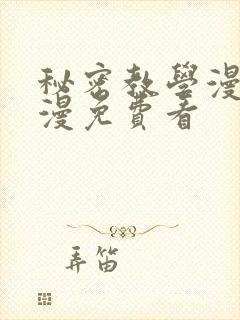 秘密教學漫
漫免費看
弄笛